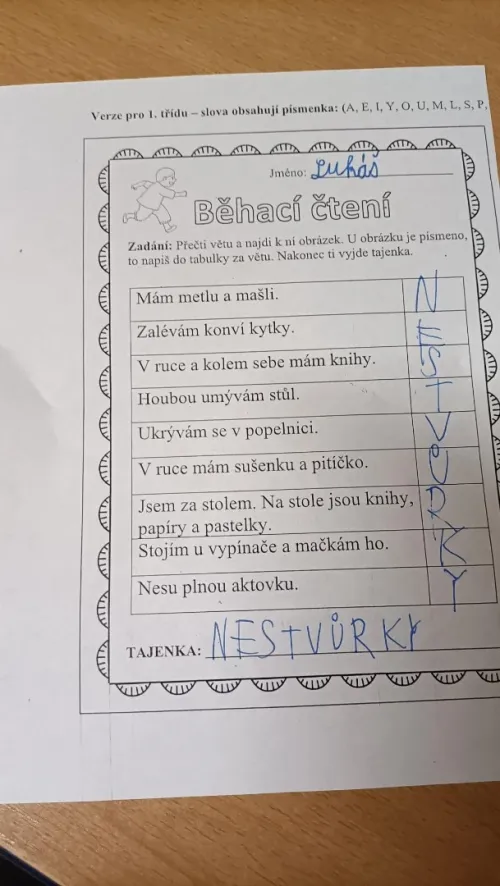 Verze pro 1. třídu – slova obsahují písmenka: (A, E, I, Y, O, U, M, L, S, P,
Jméno: Lukáš
Běhací čtení
Zadání: Přečti větu a najdi k ní obrázek. U obrázku je písmeno,
to napiš do tabulky za větu. Nakonec ti vyjde tajenka.
Mám metlu a mašli. N
Zalévám konví kytky. E
V ruce a kolem sebe mám knihy. S
Houbou umývám stůl. T
Ukrývám se v popelnici. V
V ruce mám sušenku a pitíčko. Ů
Jsem za stolem. Na stole jsou knihy,
papíry a pastelky. R
Stojím u vypínače a mačkám ho. K
Nesu plnou aktovku. Y
TAJENKA: NESTVŮRKY